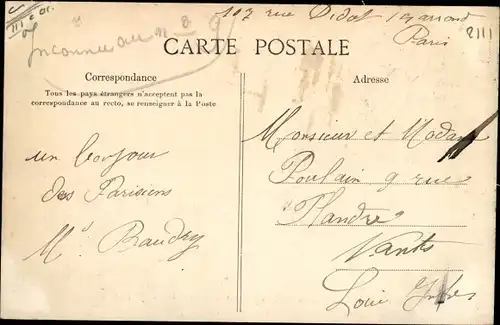 107 rue Didot
Paris
2111
Inconnu au n° 8
CARTE POSTALE
Correspondance
Tous les pays étrangers n'acceptent pas la
correspondance au recto, se renseigner à la Poste
Adresse
un bonjour
des Parisiens
Baudry
Monsieur et Madame
Poulain 9 rue
Flandre
Nantes
Loire Infre